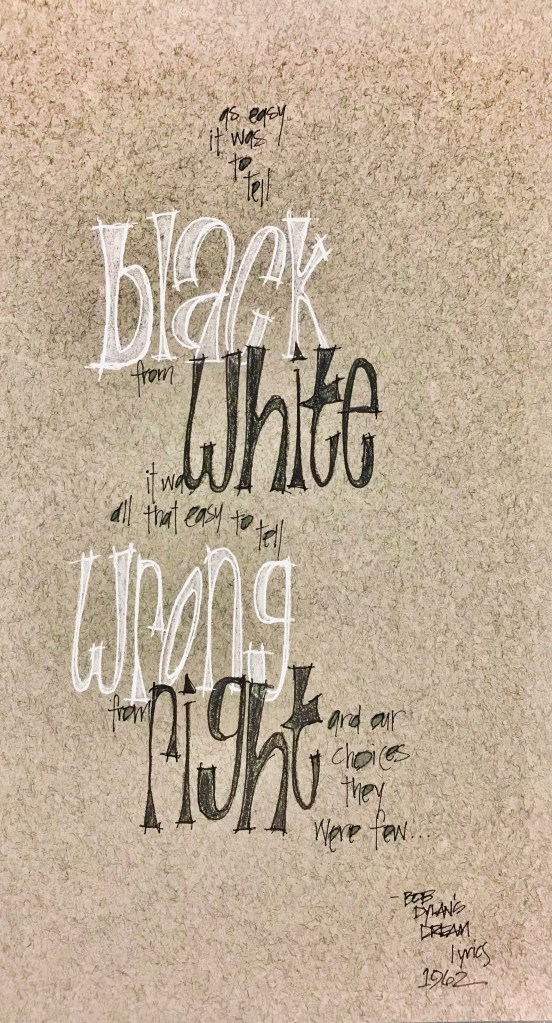 as easy
it was
to
tell
black
from white
it was
all that easy to tell
wrong
from right and our
choices
they
were few...
- BOB
DYLAN'S
DREAM
lyrics
1962